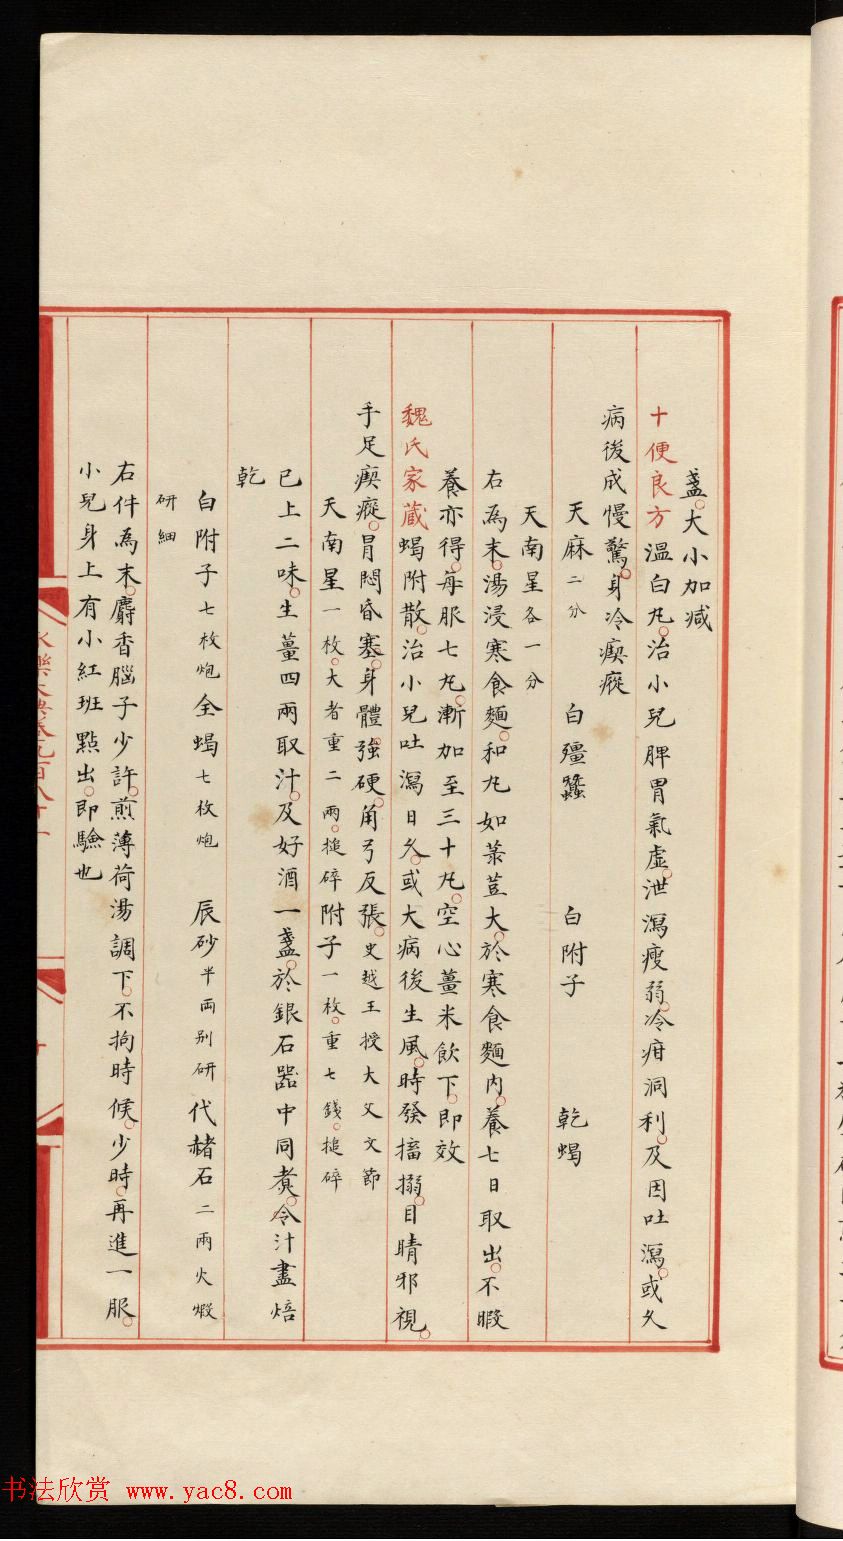 盞。大小加减
十便良方溫白丸。治小兒脾胃氣虛。泄瀉瘦弱。冷疳洞利。及因吐瀉。或久
病後成慢驚。身冷瘈瘲
天麻二分 白殭蠶 白附子 乾蝎
天南星各一分
右為末。湯浸寒食麵。和丸如菉荳大。於寒食麵內。養七日取出。不暇
養亦得。每服七丸。漸加至三十丸。空心薑米飲下。即效
魏氏家藏蝎附散。治小兒吐瀉日久。或大病後生風。時發搐搦。目睛邪視。
手足瘈瘲。胃悶昏塞。身體強硬。角弓反張。史越王授大父文節
天南星一枚。大者重二兩。搥碎附子一枚。重七錢。搥碎
已上二味。生薑四兩取汁。及好酒一盞。於銀石器中同煮。令汁盡焙
乾
白附子七枚炮全蝎七枚炮 辰砂半両別研代赭石二兩火煅
研細
右件為末。麝香腦子少許。煎薄荷湯調下。不拘時候。少時。再進一服。
小兒身上有小紅班點出。即驗也
永樂大典卷九百八十一
十
书法欣赏 www.yac8.com